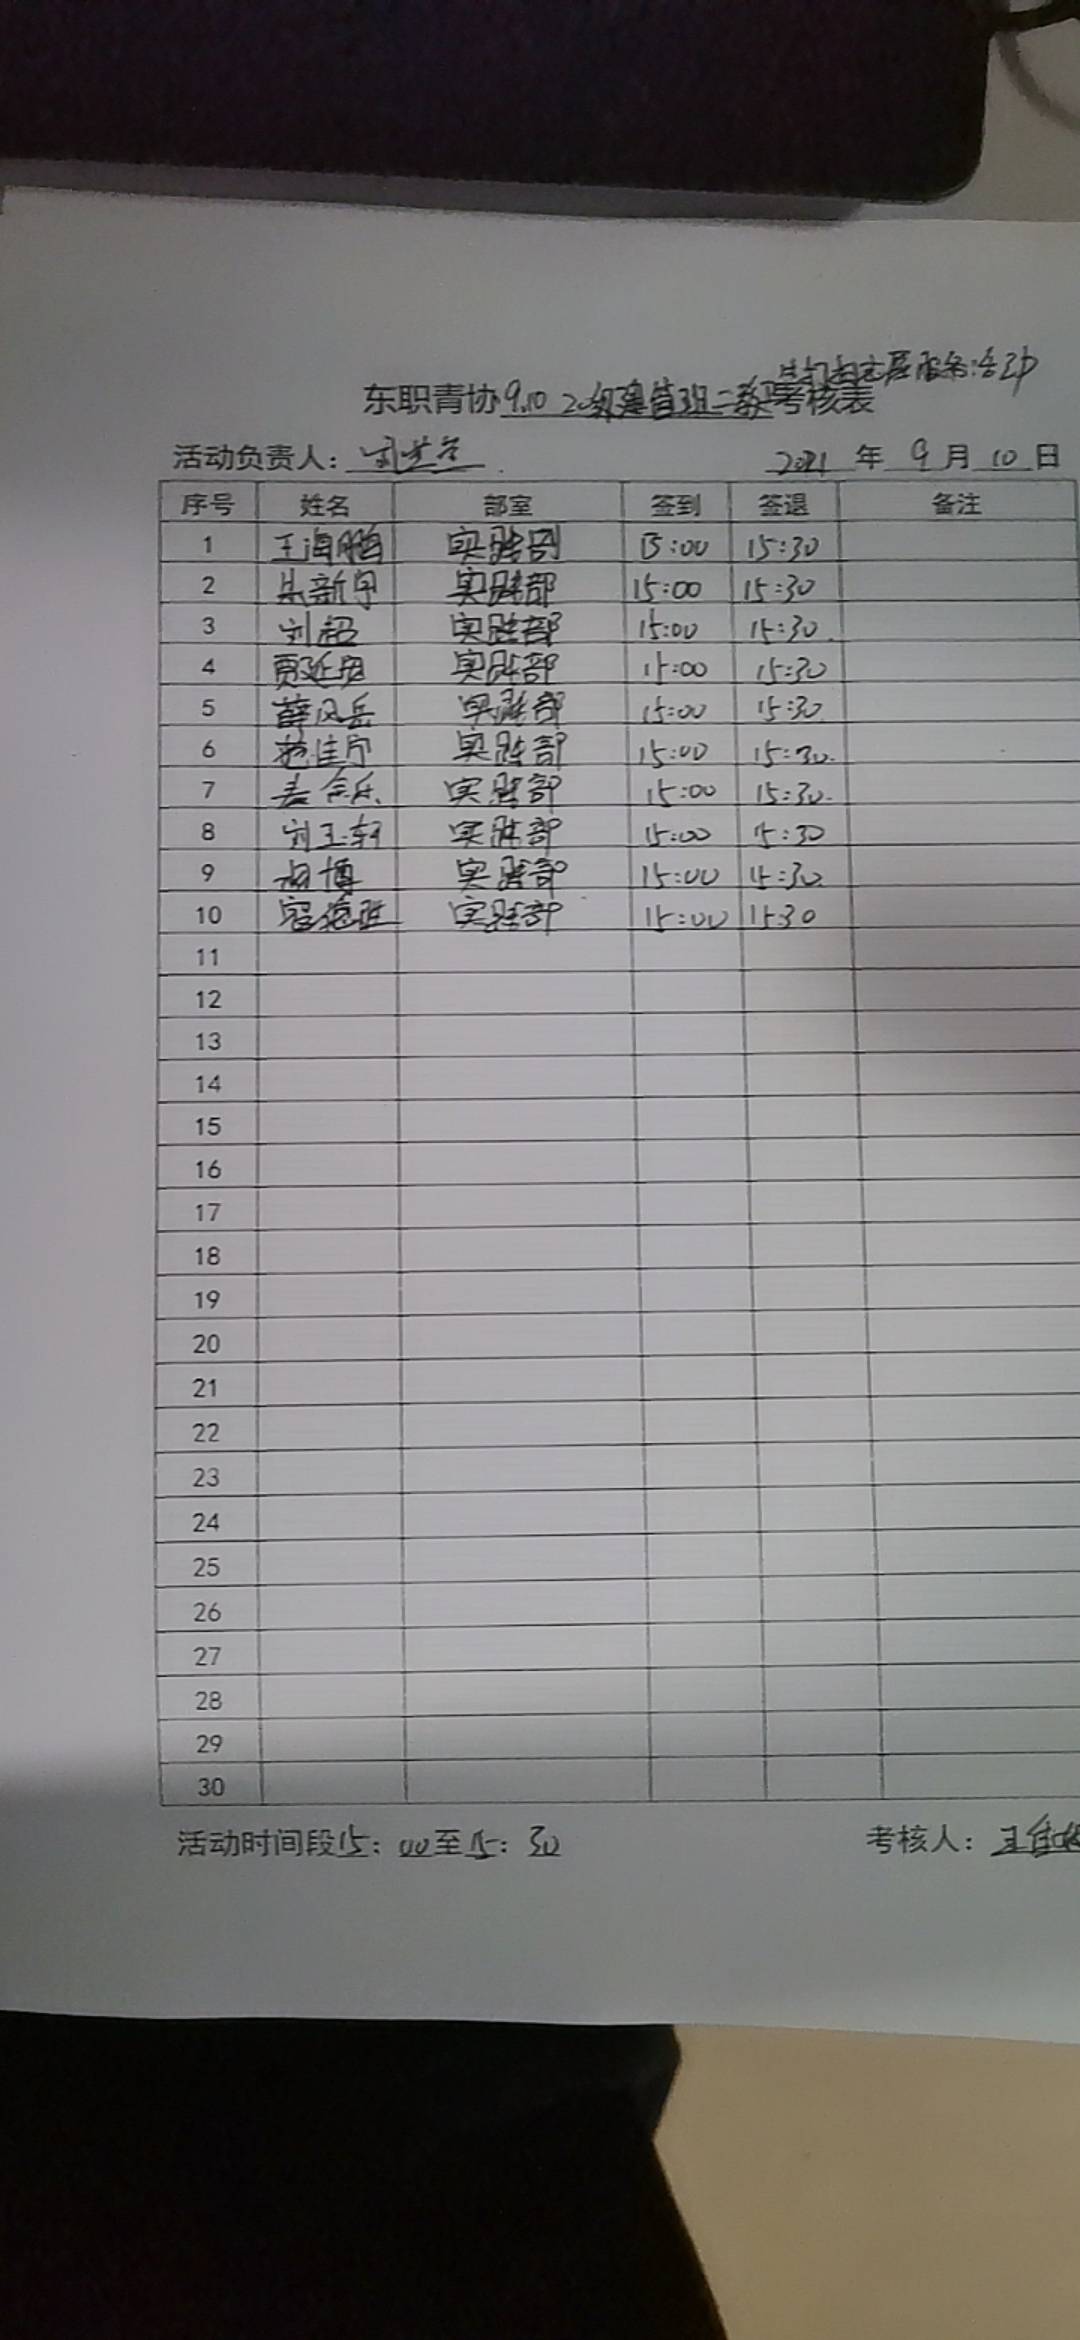 服务活动
东职青协9.10 20级 值班二 考核表
活动负责人：刘
2021年9月10日
序号 姓名 部室 签到 签退 备注
1 王海鹏 实践部 15:00 15:30
2 朱新宇 实践部 15:00 15:30
3 刘超 实践部 15:00 15:30
4 贾延 实践部 15:00 15:30
5 薛风岳 实践部 15:00 15:30
6 佳宁 实践部 15:00 15:30
7 实践部 15:00 15:30
8 刘玉轩 实践部 15:00 15:30
9 博 实践部 15:00 15:30
10 实践部 15:00 1530
11
12
13
14
15
16
17
18
19
20
21
22
23
24
25
26
27
28
29
30
活动时间段15：00至15：30
考核人：王佳